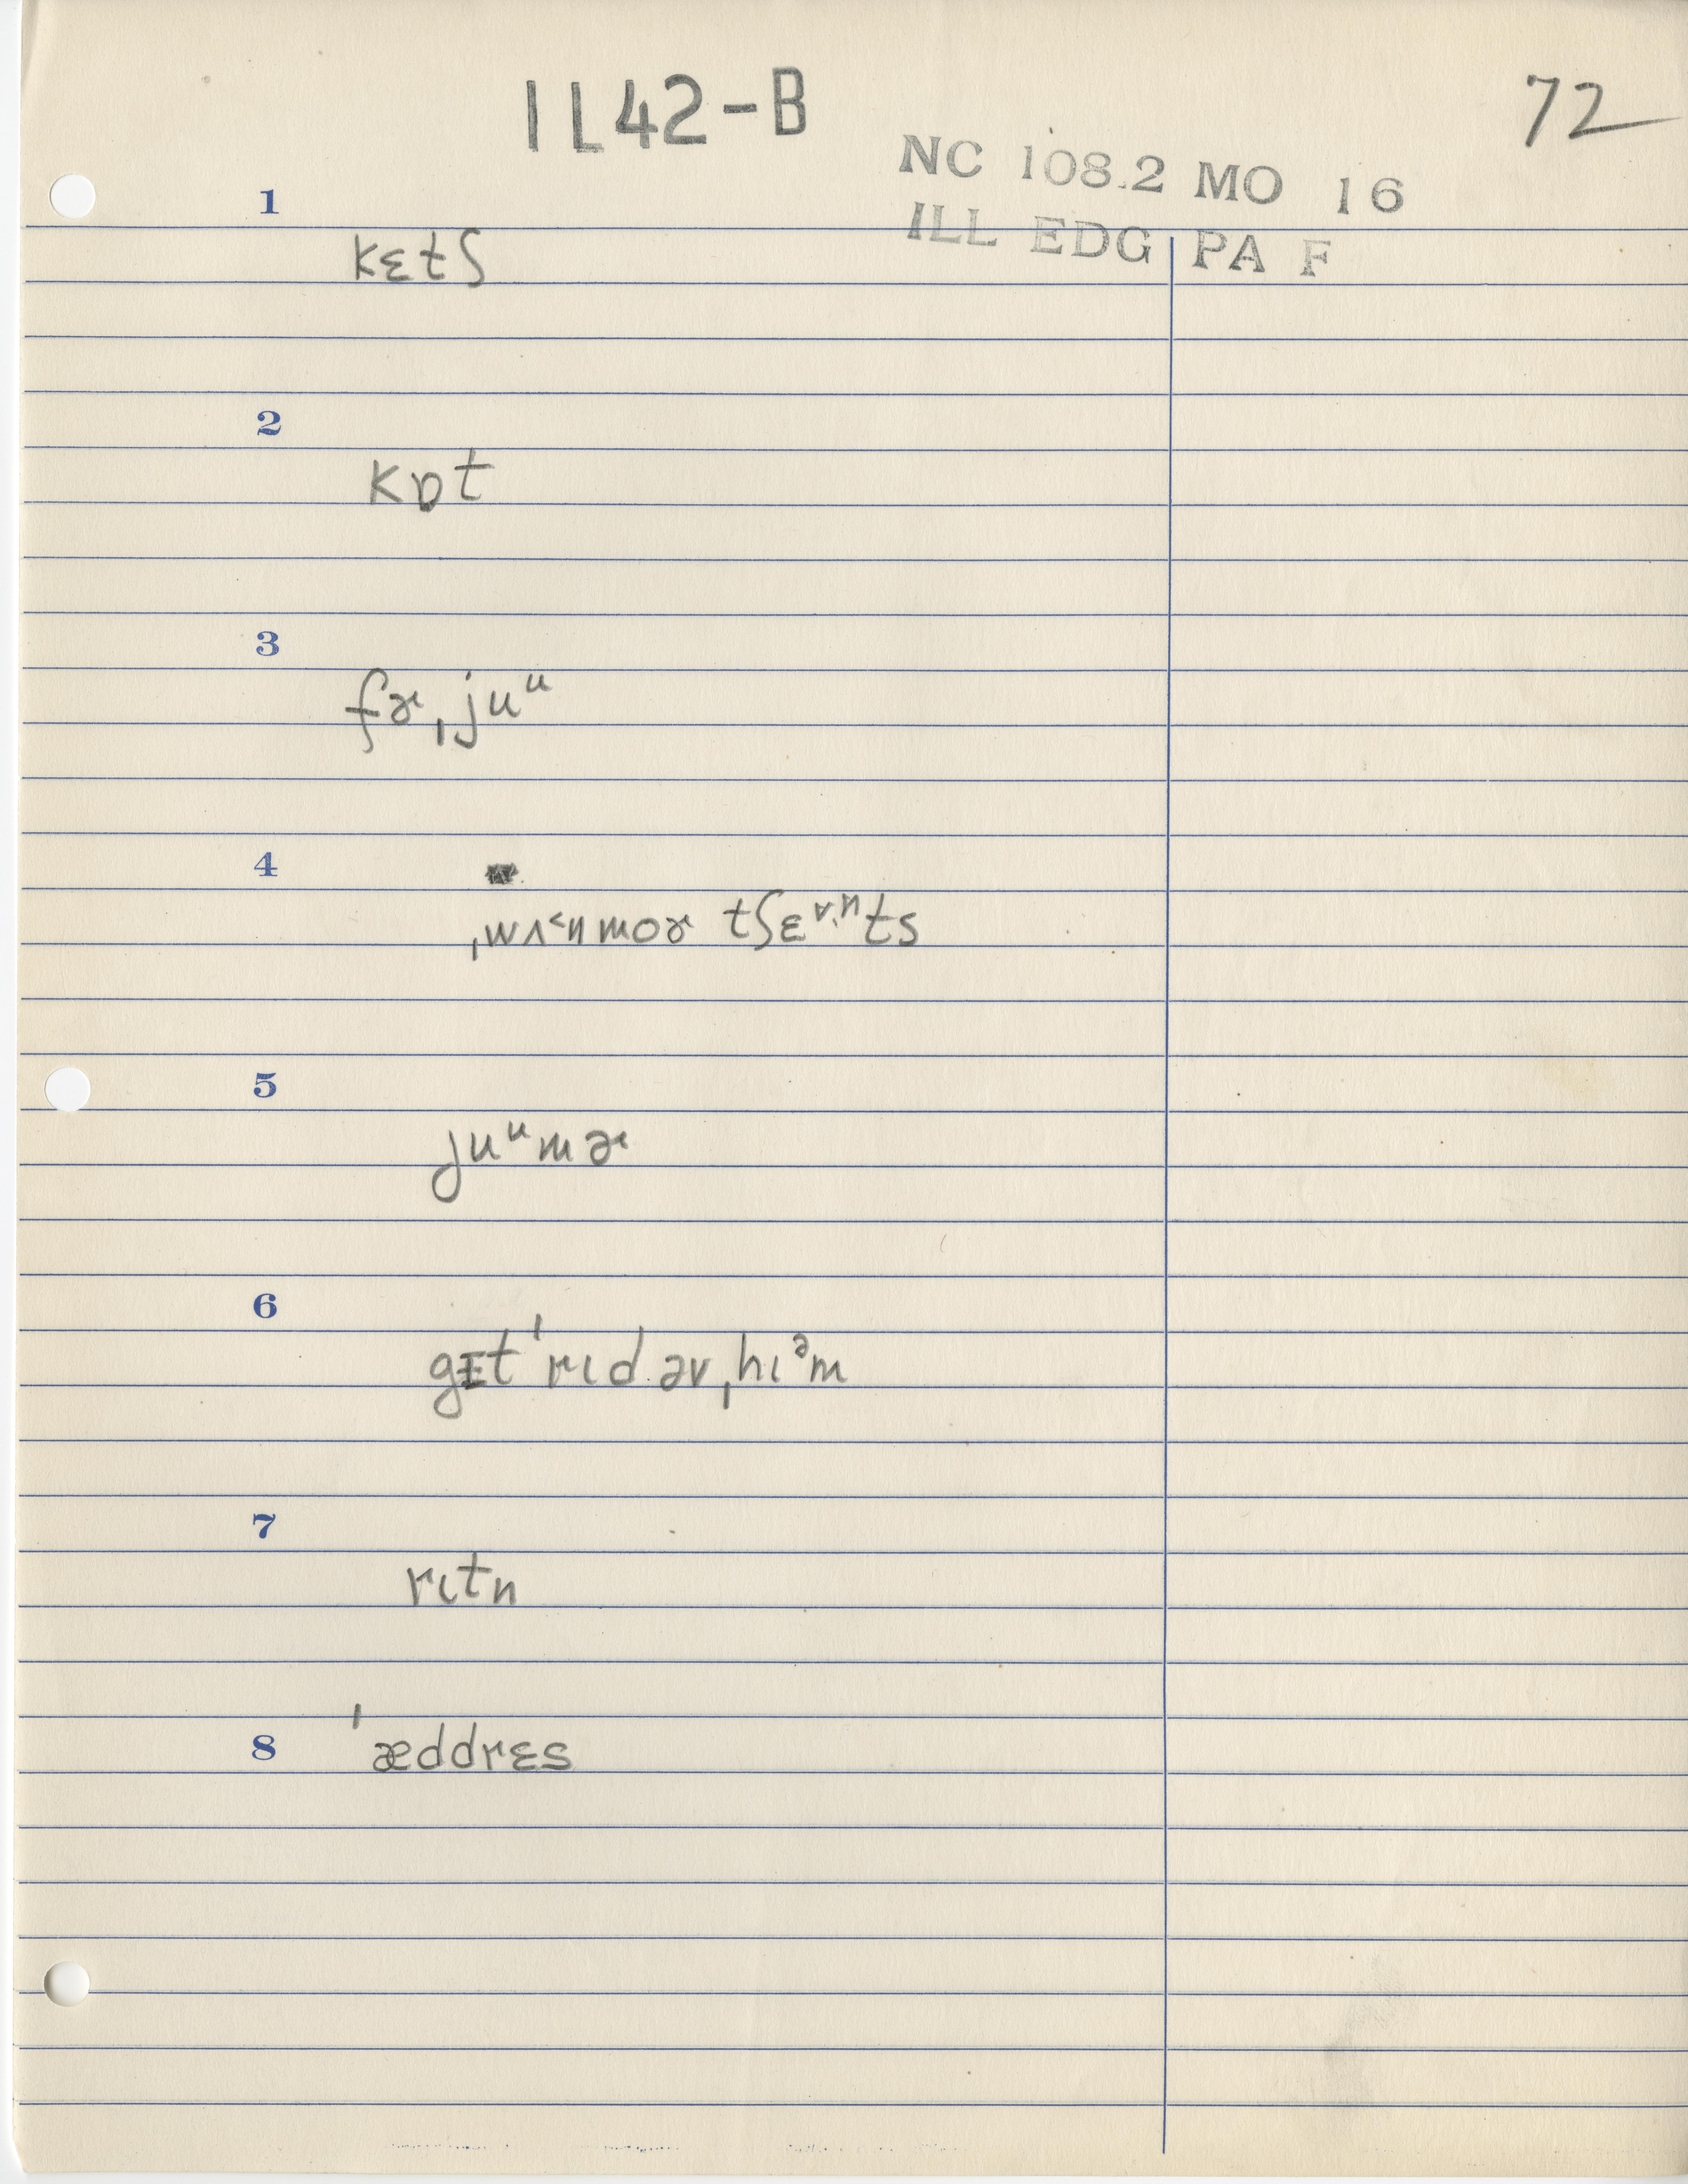 1L42-B
72
NC 108.2 MO 16
ILL EDG PA F
1
kɛtʃ
2
kɒt
3
fɚˌjuᵘ
4
ˌwʌ˂nmoɚ tʃɛᵛ·ⁿts
5
juᵘmɚ
6
gɪt ˈrɩd əvˌhɩᵊm
7
rɩtn
8
ˈæddrɛs